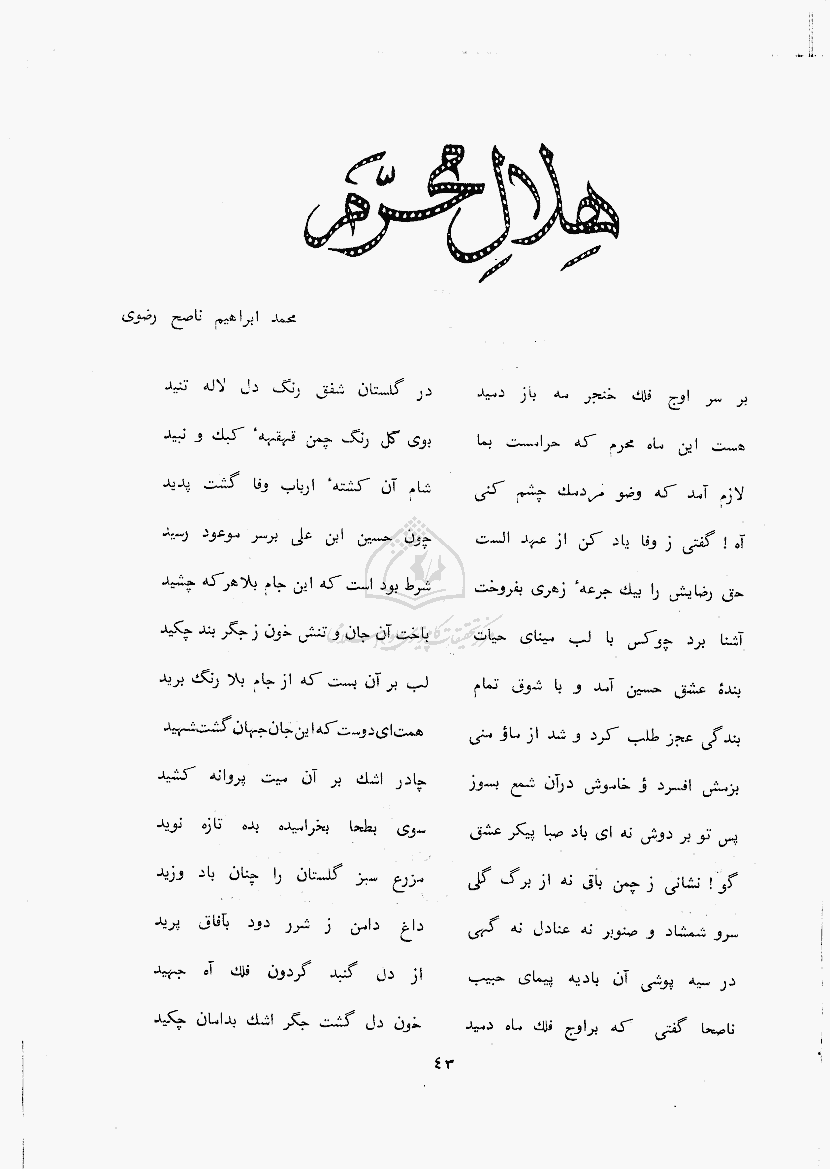 هِلالِ محرّم
محمد ابراهیم ناصح رضوی
بر سر اوج فلك خنجر مه باز دمید در گلستان شفق رنگ دل لاله تنید
هست این ماه محرم که حراست بما بوی گل رنگ چمن قهقههٔ کبك و نبید
لازم آمد که وضو مردمك چشم کنی شام آن کشتهٔ ارباب وفا گشت پدید
آه ! گفتی ز وفا یاد کن از عهد الست چون حسین ابن علی برسر موعود رسید
حق رضایش را بیك جرعهٔ زهری بفروخت شرط بود است که این جام بلا هر که چشید
آشنا برد چو کس با لب مینای حیات باخت آن جان و تنش خون ز جگر بند چکید
بندهٔ عشق حسین آمد و با شوق تمام لب بر آن بست که از جام بلا رنگ برید
بندگی عجز طلب کرد و شد از ماؤ منی همت ای دوست که این جان جهان گشت شهید
بزمش افسرد ؤ خاموش درآن شمع بسوز چادر اشك بر آن میت پروانه کشید
پس تو بر دوش نه ای باد صبا پیکر عشق سوی بطحا بخرامیده بده تازه نوید
گو ! نشانی ز چمن باقی نه از برگ گلی مزرع سبز گلستان را چنان باد وزید
سرو شمشاد و صنوبر نه عنادل نه گهی داغ دامن ز شرر دود بآفاق پرید
در سیه پوشی آن بادیه پیمای حبیب از دل گنبد گردون فلك آه جهید
ناصحا گفتی که براوج فلك ماه دمید خون دل گشت جگر اشك بدامان چکید
٤٣